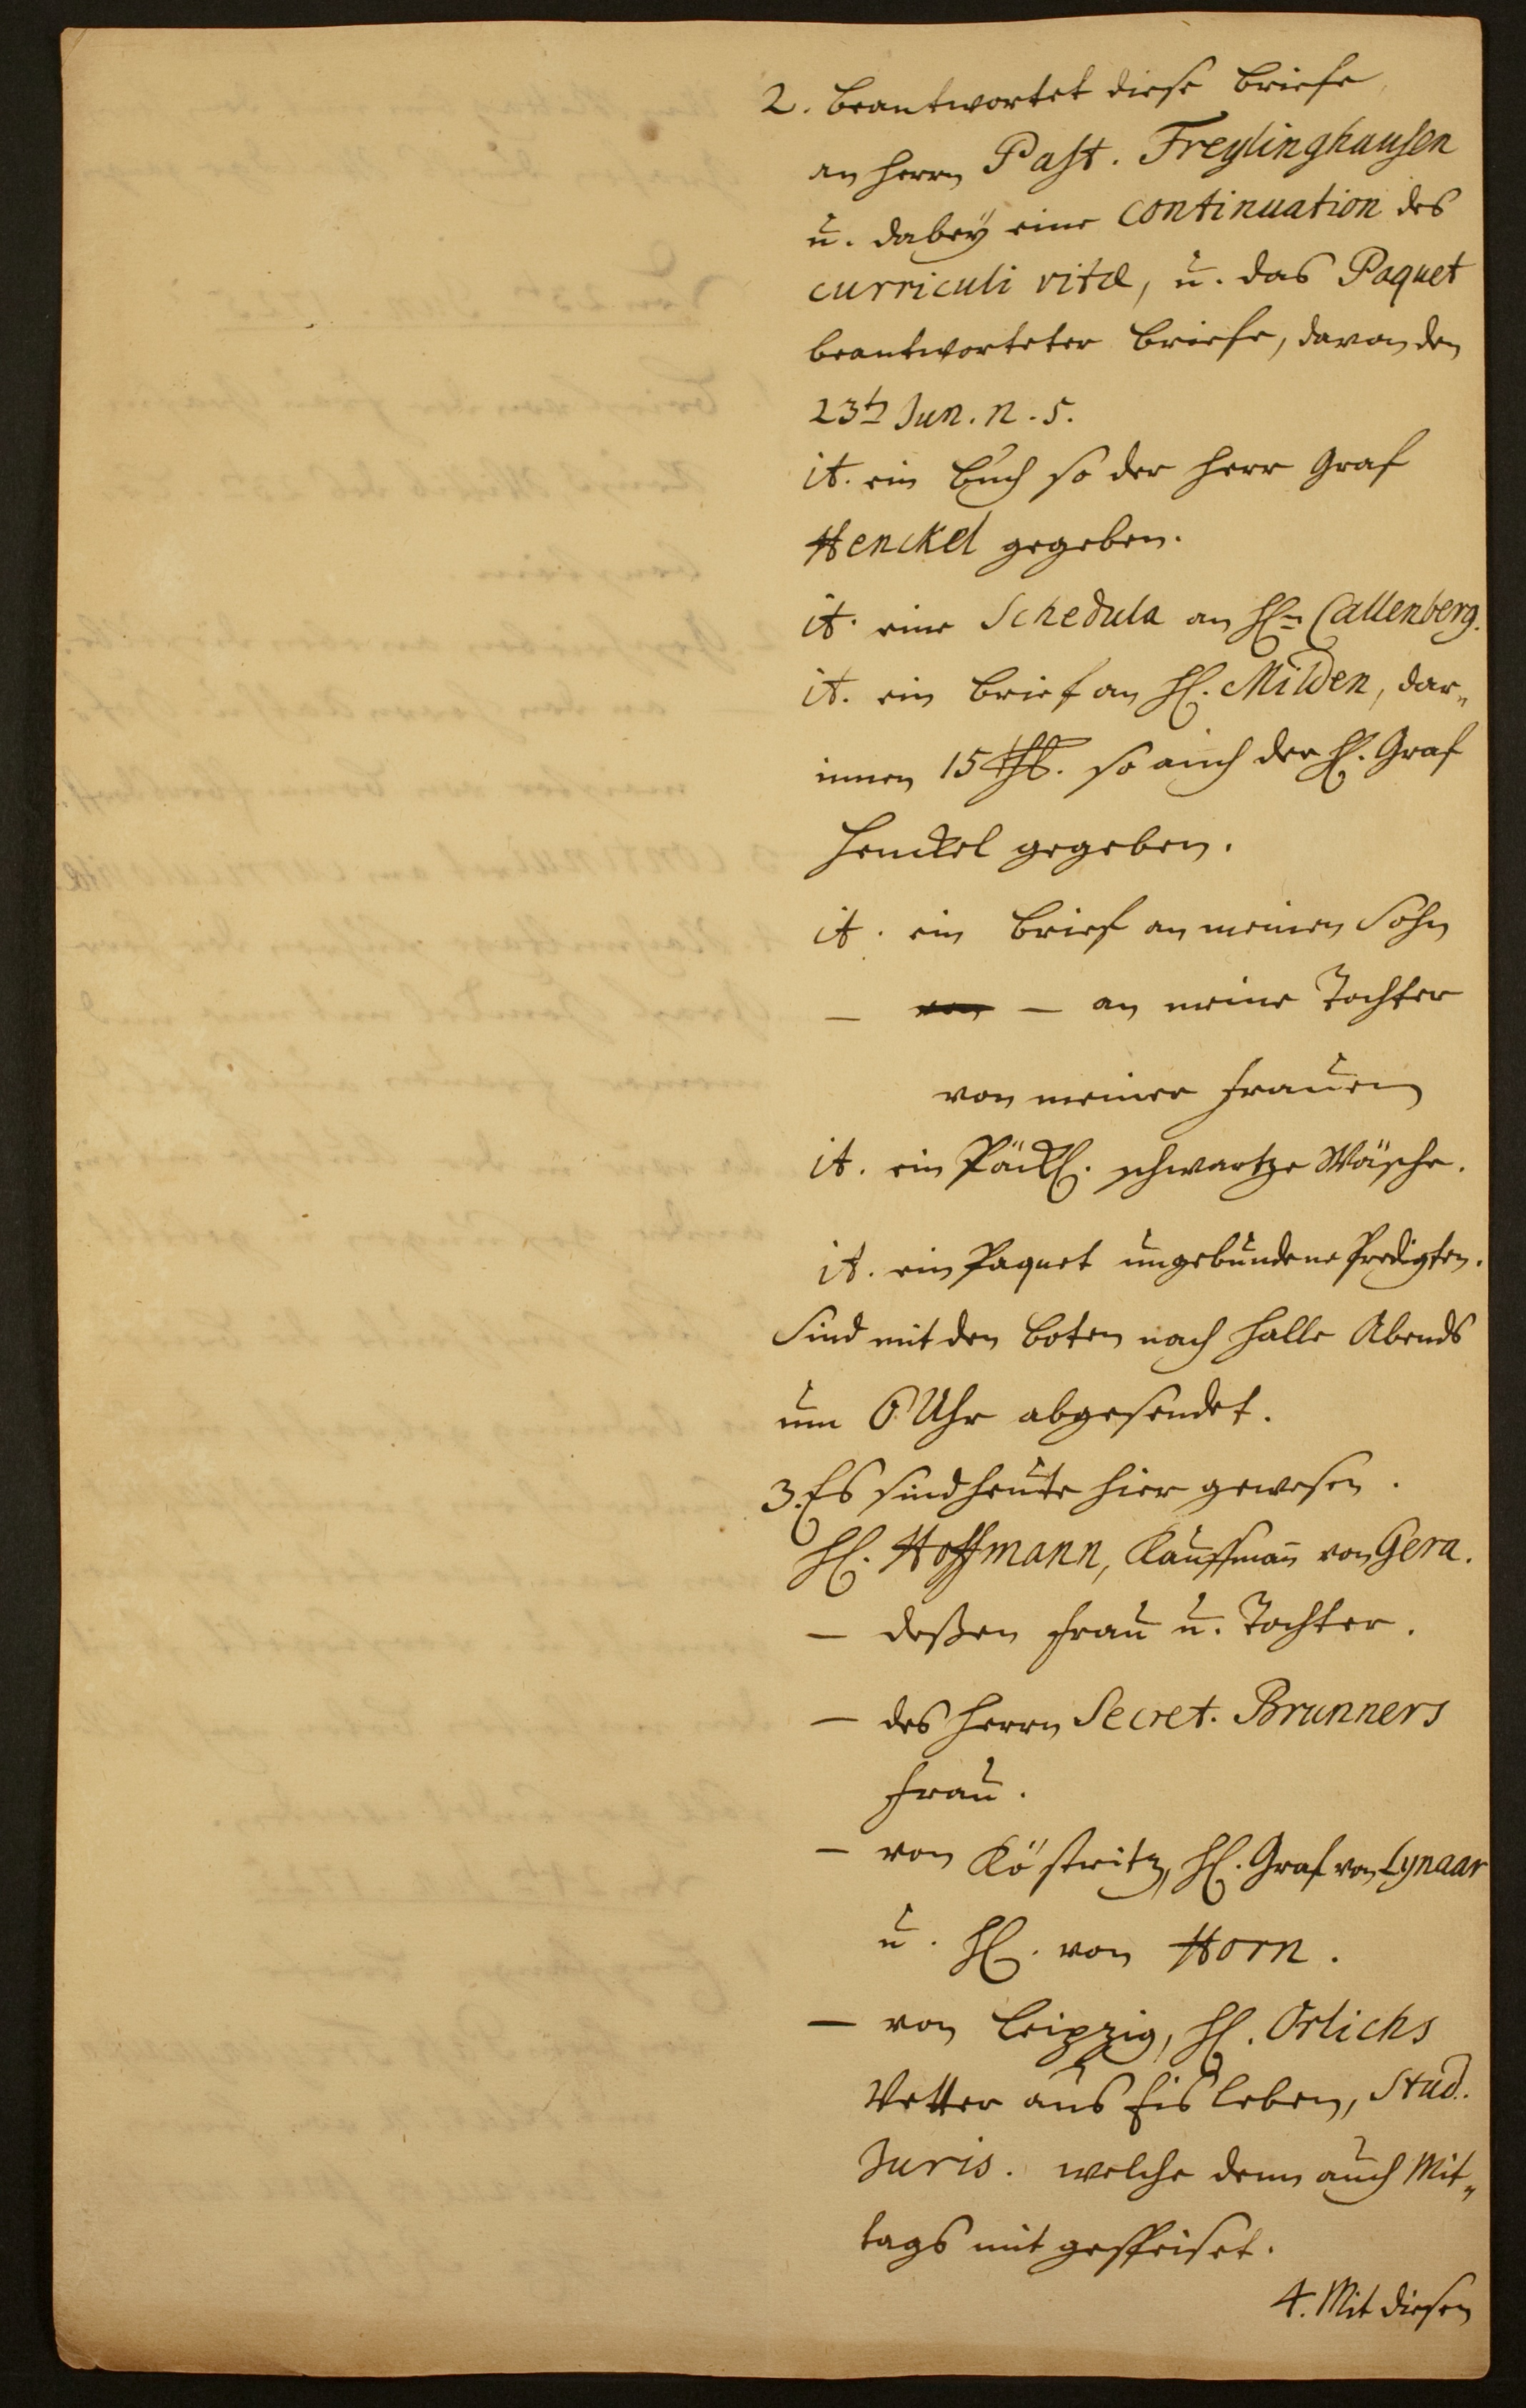 2. beantwortet diese briefe,
an Herrn Past. Freylinghausen
u. dabey eine continuation des
curriculi vitæ, u. das Paquet
beantworteter briefe, davon den
23ten Jun. n. 5.
it. ein buch so der Herr Graf
Henckel gegeben.
it. eine Schedula an Hn Callenberg.
it. ein brief an H. Milden, dar„
innen 15 thl. so auch der H. Graf
Henckel gegeben.
it. ein brief an meinen Sohn
— von — an meine Tochter
von meiner Frauen
it. ein Päckl. schwartze Wäsche.
it. ein Paquet ungebundene Predigten.
Sind mit den boten nach Halle Abends
um 6 Uhr abgesendet.
3. Es sind heute hier gewesen.
H. Hoffmann, Kauffman̅ von Gera.
— deßen Frau u. Tochter.
— des Herrn Secret. Brunners
Frau.
— von Köstritz, H. Graf von Lynaar
u. H. von Horn.
— von Leipzig, H. Orlichs
Vetter aus Eisleben, Stud.
Juris. welche denn auch Mit„
tags mit gespeiset.
4. Mit diesen